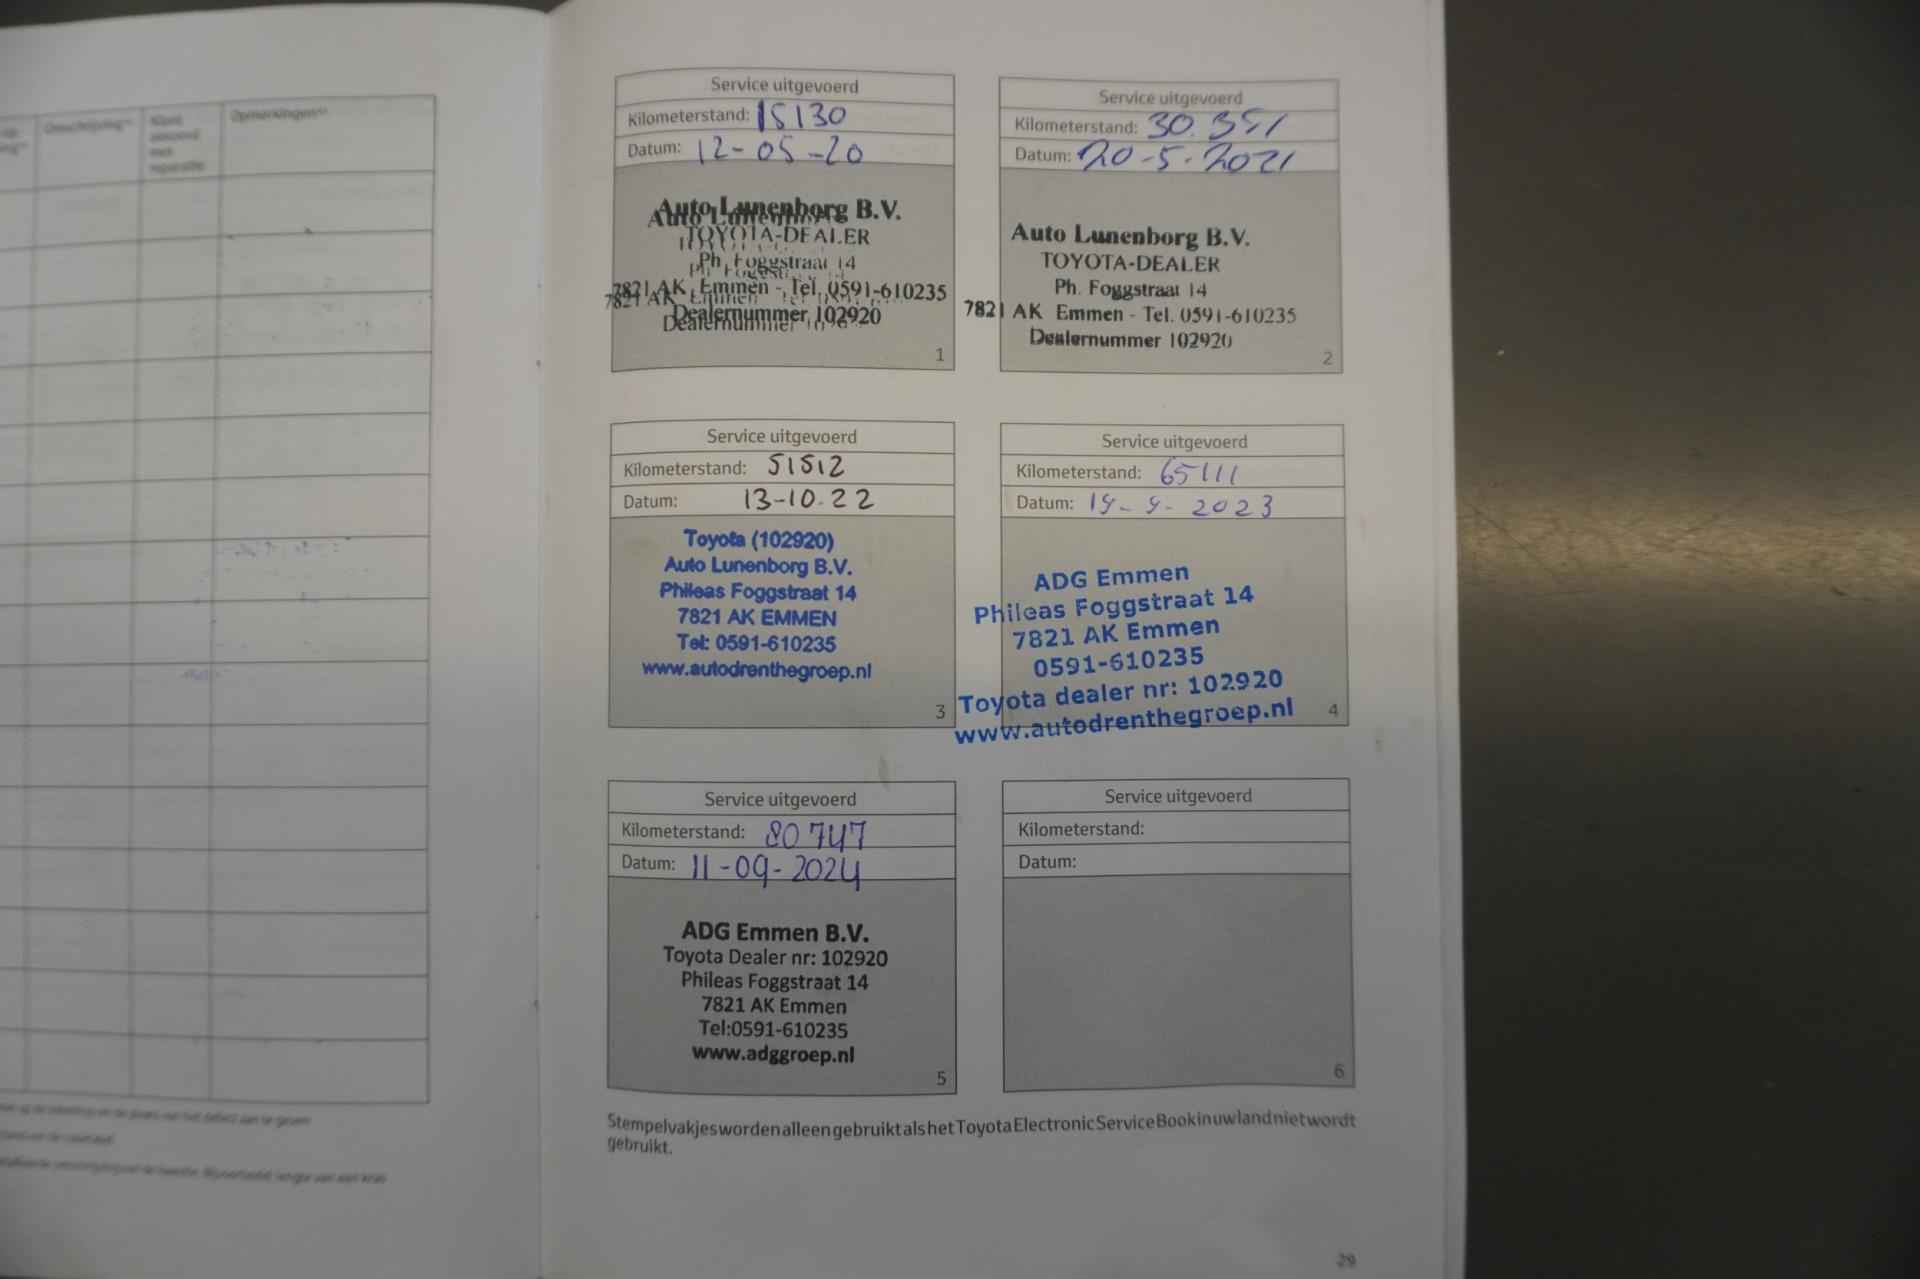 Opmerkingen
Service uitgevoerd
Kilometerstand: 15130
Datum: 12-05-20
Auto Lunenborg B.V.
TOYOTA-DEALER
Ph. Foggstraat 14
7821 AK Emmen - Tel. 0591-610235
Dealernummer 102920
1
Service uitgevoerd
Kilometerstand: 30.351
Datum: 20-5-2021
Auto Lunenborg B.V.
TOYOTA-DEALER
Ph. Foggstraat 14
7821 AK Emmen - Tel. 0591-610235
Dealernummer 102920
2
Service uitgevoerd
Kilometerstand: 51512
Datum: 13-10-22
Toyota (102920)
Auto Lunenborg B.V.
Phileas Foggstraat 14
7821 AK EMMEN
Tel: 0591-610235
www.autodrenthegroep.nl
3
Service uitgevoerd
Kilometerstand: 65111
Datum: 2023
ADG Emmen
Phileas Foggstraat 14
7821 AK Emmen
0591-610235
Toyota dealer nr: 102920
www.autodrenthegroep.nl
4
Service uitgevoerd
Kilometerstand: 80747
Datum: 11-09-2024
ADG Emmen B.V.
Toyota Dealer nr: 102920
Phileas Foggstraat 14
7821 AK Emmen
Tel:0591-610235
www.adggroep.nl
5
Service uitgevoerd
Kilometerstand:
Datum:
6
Stempelvakjes worden alleen gebruikt als het Toyota Electronic Service Book in uw land niet wordt
gebruikt.
29